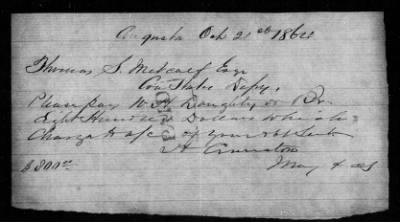 Augusta Oct 21st 1864
Thomas S. Metcalf Esqr
Con States Depy,
Please pay W. H. Doughty or Br
Eight Hundred Dollars which is
Charge to a/c of your obt Servt
$800.00